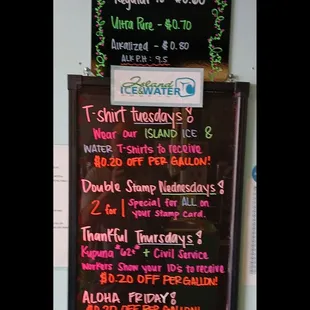 Regular
Ultra Pure - $0.70
Alkalized - $0.80
ALK PH: 9.5
Island
ICE & WATER
T-shirt tuesdays!
Wear our ISLAND ICE &
WATER T-shirts to receive
$0.20 OFF PER GALLON!
Double Stamp Wednesdays!
2 for 1 Special for ALL on
your Stamp Card.
Thankful Thursdays!
Kupuna "62+" + Civil Service
workers Show your ID's to receive
$0.20 OFF PER GALLON!
ALOHA FRIDAY!
$0.20 OFF PER GALLON!